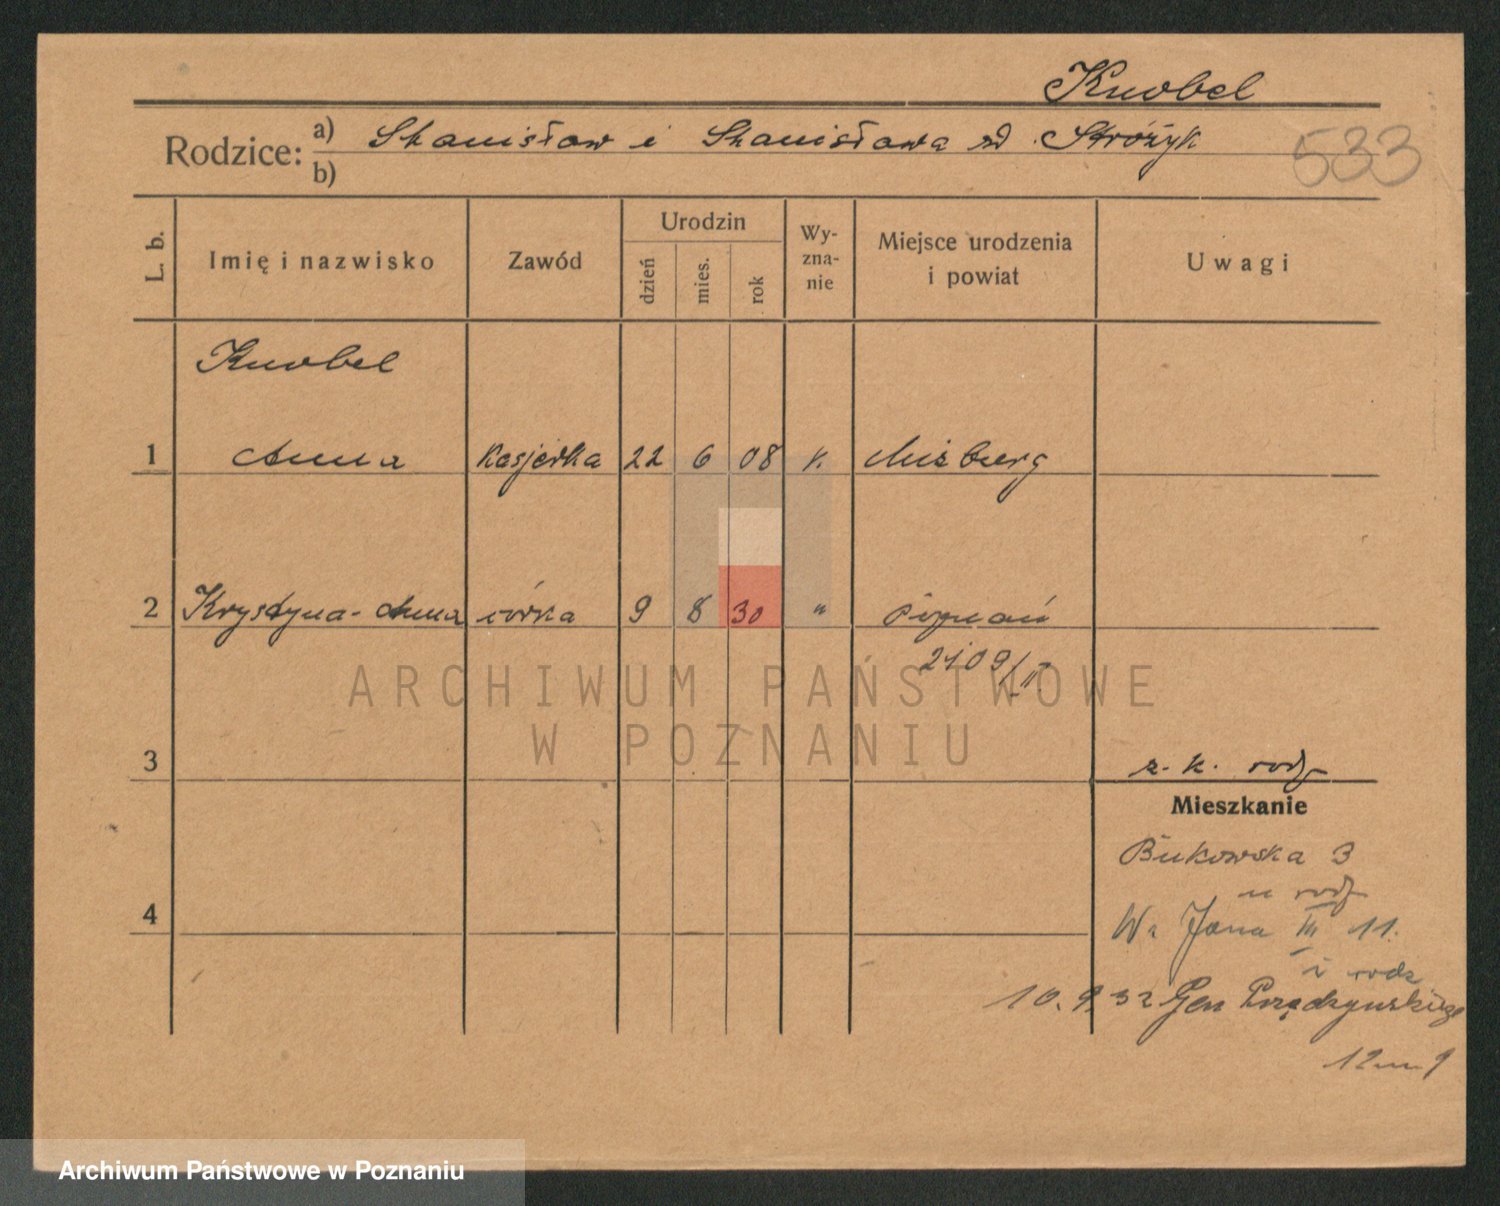 Knobel
Rodzice: a) Stanisław i Stanisława zd. Stróżyk
b)
533
L. b. Imię i nazwisko Zawód Urodzin dzień mies. rok Wy-zna-nie Miejsce urodzenia i powiat Uwagi
Knobel
1 Anna kasjerka 22 6 08 k. Misburg
2 Krystyna-Anna córka 9 8 30 " Poznań
2109/II
ARCHIWUM PAŃSTWOWE
W POZNANIU
3 z. k. rodz
Mieszkanie
Bukowska 3
u rodz
4 W. Jana III 11.
i rodz
10.9.32 Gen Prądzyńskiego
12 m 9
Archiwum Państwowe w Poznaniu